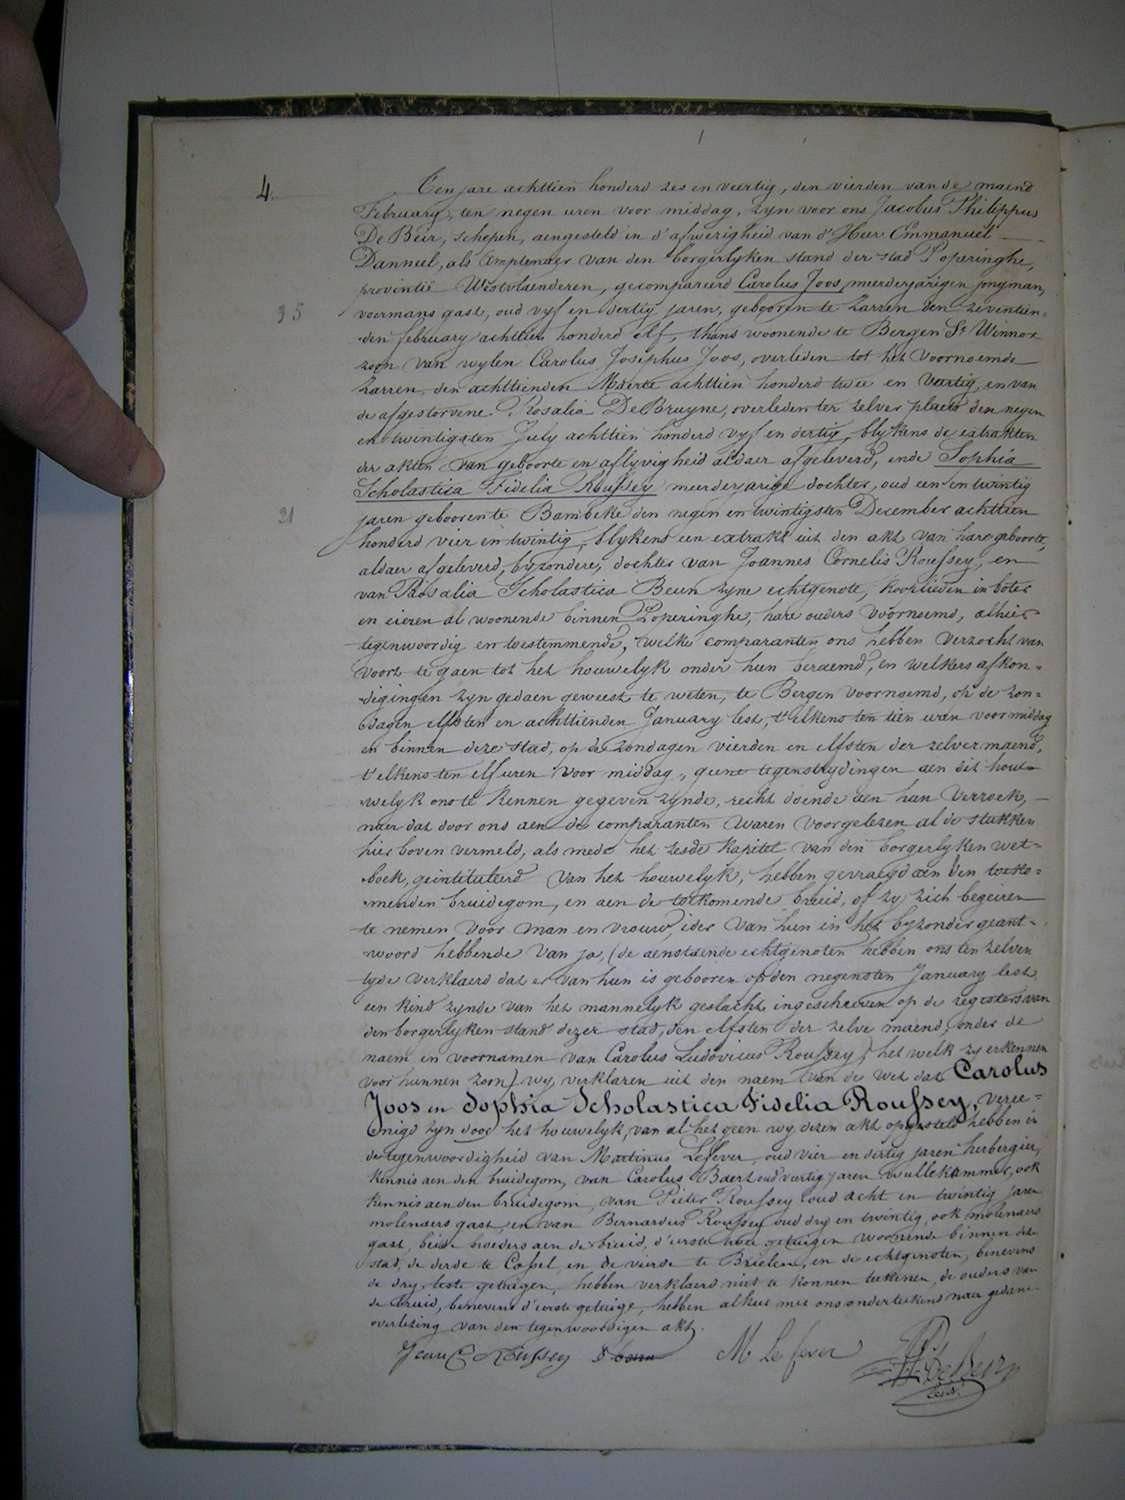 4
Ten jare achttien honderd zes en veertig, den vierden van de maend
February, ten negen uren voor middag, zyn voor ons Jacobus Philippus
De Beir, schepen, aengesteld in d'afwezigheid van d'Heer Emmanuel
Danneel, als Amptenaer van den borgerlyken stand der stad Poperinghe,
provintie Westvlaenderen, gecompareerd Carolus Joos, meerderjarigen jongman,
35
voermans gast, oud vyf en dertig jaren, gebooren te Zarren den zeventien-
den february achttien honderd elf, thans woonende te Bergen St Winnox
zoon van wylen Carolus Josephus Joos, overleden tot het voornoemde
Zarren, den achttienden Maerte achttien honderd twee en veertig, en van
de afgestorvene Rosalia DeBruyne, overleden ter zelver plaets den negen
en twintigsten July achttien honderd vyf en dertig, blykens de extrakten
der akten van geboorte en aflyvigheid aldaer afgeleverd, ende Sophia
Scholastica Fidelia Roussey meerderjarige dochter, oud een en twintig
21
jaren gebooren te Bambeke den negen en twintigsten December achttien
honderd vier en twintig, blykens een extrakt uit den akt van hare geboorte,
aldaer afgeleverd, byzondere, dochter van Joannes Cornelis Roussey, en
van Rosalia Scholastica Beun zyne echtgenote, kooplieden in boter
en eieren al woonende binnen Poperinghe, hare ouders voornoemd, alhier
tegenwoordig en toestemmende, welke comparanten ons hebben verzocht van
voort te gaen tot het houwelyk onder hun beraemd, en welkers afkon-
digingen zyn gedaen geweest te weten, te Bergen voornoemd, op de zon-
dagen elfsten en achttienden January lest, t'elkens ten tien uren voormiddag
en binnen deze stad, op de zondagen vierden en elfsten der zelver maend,
t'elkens ten elf uren voor middag, geene tegenstrydingen aen dit hou-
welyk ons te kennen gegeven zynde, recht doende aen hun verzoek,
naer dat door ons aen de comparanten waren voorgelezen al de stukken
hier boven vermeld, als mede het zesde kapitel van den borgerlyken wet-
boek, geintituleerd van het houwelyk, hebben gevraegd aen den toeko-
menden bruidegom, en aen de toekomende bruid, of zy zich begeiren
te nemen voor man en vrouw, ider van hun in het byzonder geant-
woord hebbende van ja, (de aenstaende echtgenoten hebben ons ten zelven
tyde verklaerd dat er van hun is gebooren op den negensten January lest
een kind zynde van het mannelyk geslacht, ingeschreven op de registers van
den borgerlyken stand dezer stad, den elfsten der zelve maend, onder de
naem en voornamen van Carolus Ludovicus Roussey, het welk zy erkennen
voor hunnen zoon) wy verklaren uit den naem van de wet dat Carolus
Joos en Sophia Scholastica Fidelia Roussey, veree-
nigd zyn door het houwelyk, van al het geen wy dezen akt opgesteld hebben in
de tegenwoordigheid van Martinus Lefever, oud vier en dertig jaren herbergier,
kennis aen den bruidegom, van Carolus Baert oud veertig jaren wullekammer, ook
kennis aen den bruidegom, van Pieter Roussey oud acht en twintig jaren
molenaers gast, en van Bernardus Roussey oud dry en twintig, ook molenaers
gast, beide broeders aen de bruid, d'eerste twee getuigen woonende binnen deze
stad, de derde te Cassel en de vierde te Brielen, en de echtgenoten, benevens
de dry leste getuigen, hebben verklaerd niet te konnen teekenen, de ouders van
de bruid, benevens d'eerste getuige, hebben alhier met ons onderteekend naer gedane
overlezing van den tegenwoordigen akt.
Jean C Roussey M Lefever